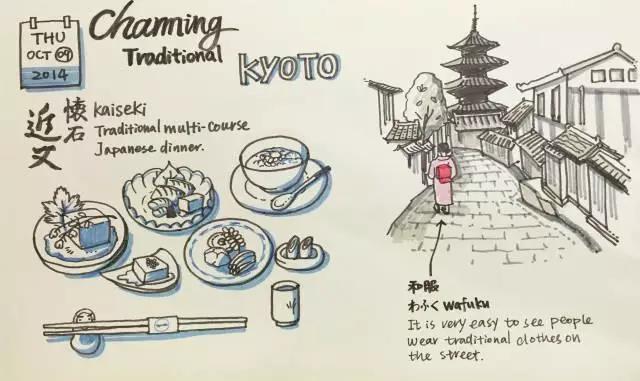 THU
OCT 09
2014
Charming
Traditional
KYOTO
近又
懐石
kaiseki
Traditional multi-course
Japanese dinner.
和服
わふく wafuku
It is very easy to see people
wear traditional clothes on
the street.